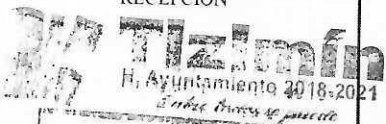 RECEPCIÓN
Tizimín
H. Ayuntamiento 2018-2021